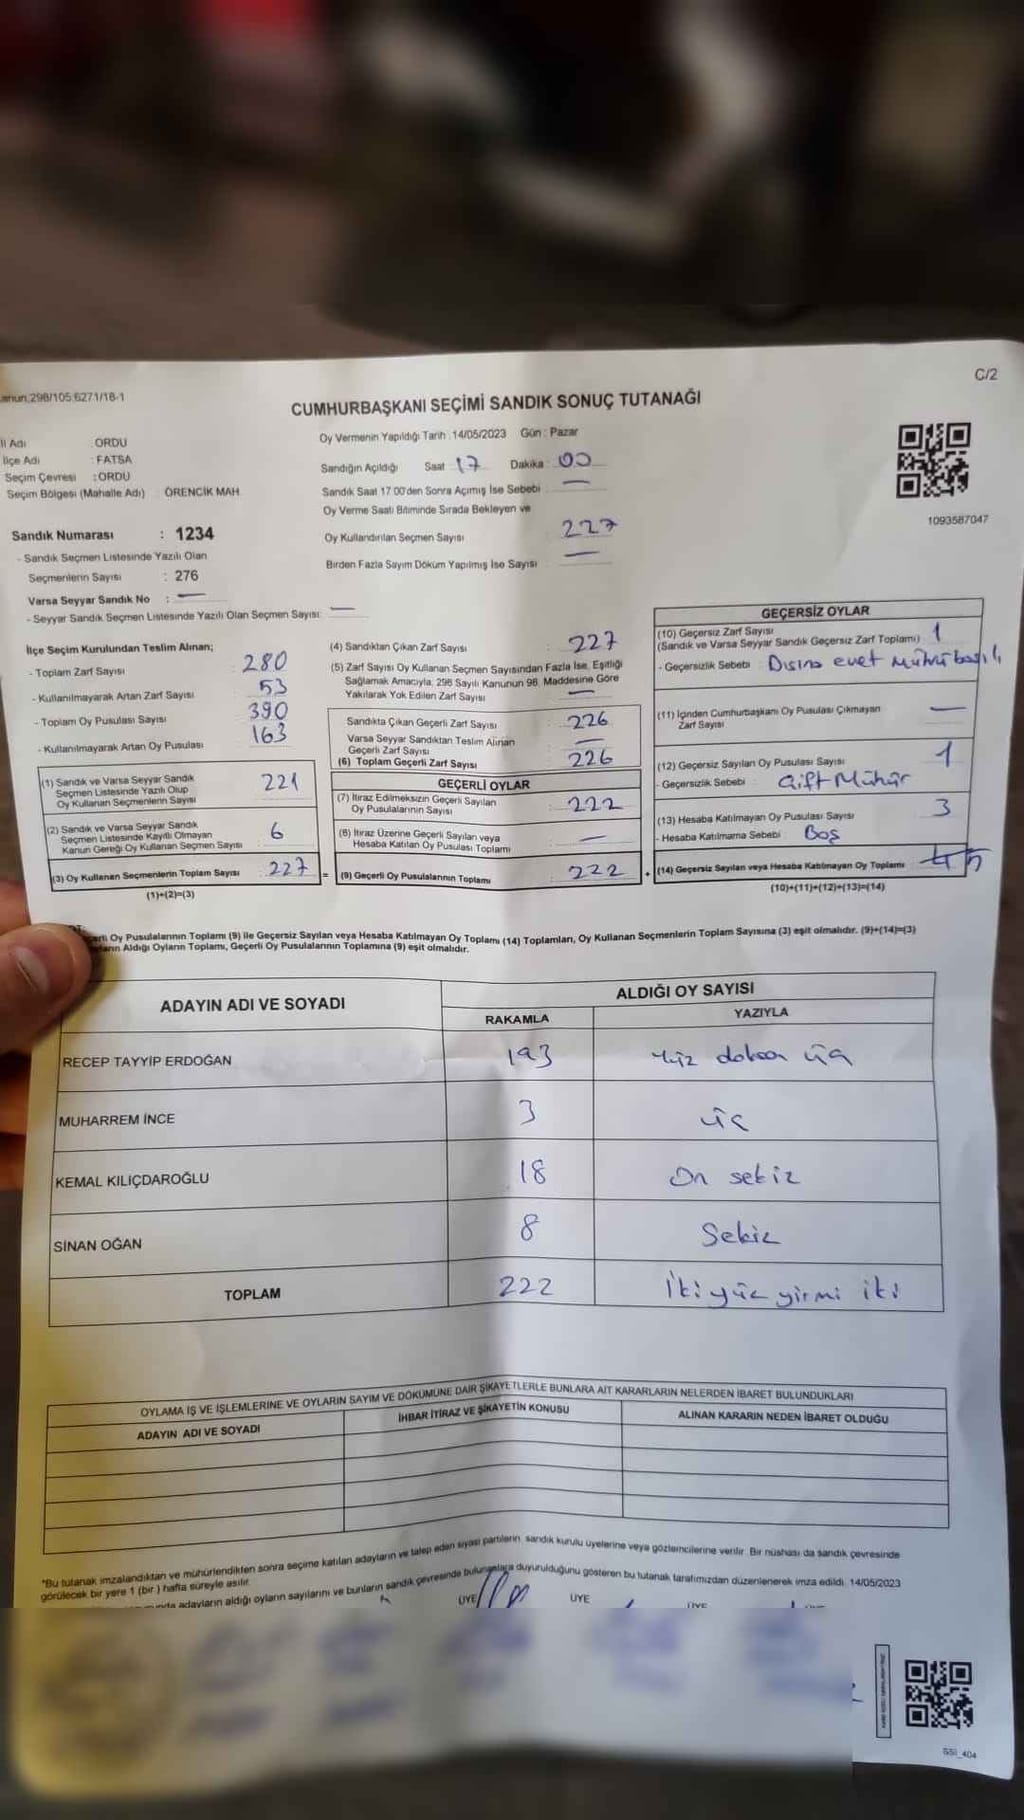 C/2
anun:298/105;6271/18-1
CUMHURBAŞKANI SEÇİMİ SANDIK SONUÇ TUTANAĞI
İl Adı : ORDU
İlçe Adı : FATSA
Seçim Çevresi : ORDU
Seçim Bölgesi (Mahalle Adı) : ÖRENCİK MAH.
Oy Vermenin Yapıldığı Tarih : 14/05/2023 Gün : Pazar
Sandığın Açıldığı Saat 17 Dakika : 00
Sandık Saat 17.00'den Sonra Açılmış İse Sebebi : —
Oy Verme Saati Bitiminde Sırada Bekleyen ve
Oy Kullandırılan Seçmen Sayısı : 227
Birden Fazla Sayım Döküm Yapılmış İse Sayısı : —
1093587047
Sandık Numarası : 1234
- Sandık Seçmen Listesinde Yazılı Olan
Seçmenlerin Sayısı : 276
Varsa Seyyar Sandık No : —
- Seyyar Sandık Seçmen Listesinde Yazılı Olan Seçmen Sayısı: —
İlçe Seçim Kurulundan Teslim Alınan;
- Toplam Zarf Sayısı : 280
- Kullanılmayarak Artan Zarf Sayısı : 53
- Toplam Oy Pusulası Sayısı : 390
- Kullanılmayarak Artan Oy Pusulası : 163
(1) Sandık ve Varsa Seyyar Sandık
Seçmen Listesinde Yazılı Olup
Oy Kullanan Seçmenlerin Sayısı : 221
(2) Sandık ve Varsa Seyyar Sandık
Seçmen Listesinde Kayıtlı Olmayan
Kanun Gereği Oy Kullanan Seçmen Sayısı : 6
(3) Oy Kullanan Seçmenlerin Toplam Sayısı : 227
(1)+(2)=(3)
(4) Sandıktan Çıkan Zarf Sayısı : 227
(5) Zarf Sayısı Oy Kullanan Seçmen Sayısından Fazla İse, Eşitliği
Sağlamak Amacıyla, 298 Sayılı Kanunun 98. Maddesine Göre
Yakılarak Yok Edilen Zarf Sayısı : —
Sandıkta Çıkan Geçerli Zarf Sayısı : 226
Varsa Seyyar Sandıktan Teslim Alınan
Geçerli Zarf Sayısı : —
(6) Toplam Geçerli Zarf Sayısı : 226
GEÇERLİ OYLAR
(7) İtiraz Edilmeksizin Geçerli Sayılan
Oy Pusulalarının Sayısı : 222
(8) İtiraz Üzerine Geçerli Sayılan veya
Hesaba Katılan Oy Pusulası Toplamı : —
= (9) Geçerli Oy Pusulalarının Toplamı : 222 +
GEÇERSİZ OYLAR
(10) Geçersiz Zarf Sayısı
(Sandık ve Varsa Seyyar Sandık Geçersiz Zarf Toplamı) : 1
- Geçersizlik Sebebi : Dışına evet mührü basılı
(11) İçinden Cumhurbaşkanı Oy Pusulası Çıkmayan
Zarf Sayısı : —
(12) Geçersiz Sayılan Oy Pusulası Sayısı : 1
- Geçersizlik Sebebi : Çift Mühür
(13) Hesaba Katılmayan Oy Pusulası Sayısı : 3
- Hesaba Katılmama Sebebi : Boş
(14) Geçersiz Sayılan veya Hesaba Katılmayan Oy Toplamı : 5
(10)+(11)+(12)+(13)=(14)
Oy Pusulalarının Toplamı (9) ile Geçersiz Sayılan veya Hesaba Katılmayan Oy Toplamı (14) Toplamları, Oy Kullanan Seçmenlerin Toplam Sayısına (3) eşit olmalıdır. (9)+(14)=(3)
Aldığı Oyların Toplamı, Geçerli Oy Pusulalarının Toplamına (9) eşit olmalıdır.
ADAYIN ADI VE SOYADI ALDIĞI OY SAYISI
RAKAMLA YAZIYLA
RECEP TAYYİP ERDOĞAN 193 Yüz doksan üç
MUHARREM İNCE 3 üç
KEMAL KILIÇDAROĞLU 18 On sekiz
SİNAN OĞAN 8 Sekiz
TOPLAM 222 İki yüz yirmi iki
OYLAMA İŞ VE İŞLEMLERİNE VE OYLARIN SAYIM VE DÖKÜMÜNE DAİR ŞİKAYETLERLE BUNLARA AİT KARARLARIN NELERDEN İBARET BULUNDUKLARI
ADAYIN ADI VE SOYADI İHBAR İTİRAZ VE ŞİKAYETİN KONUSU ALINAN KARARIN NEDEN İBARET OLDUĞU
"Bu tutanak imzalandıktan ve mühürlendikten sonra seçime katılan adayların ve talep eden siyasi partilerin sandık kurulu üyelerine veya gözlemcilerine verilir. Bir nüshası da sandık çevresinde
görülecek bir yere 1 (bir) hafta süreyle asılır.
adayların aldığı oyların sayılarını ve bunların sandık çevresinde bulunanlara duyurulduğunu gösteren bu tutanak tarafımızdan düzenlenerek imza edildi. 14/05/2023
ÜYE ÜYE ÜYE ÜYE
SSI_404